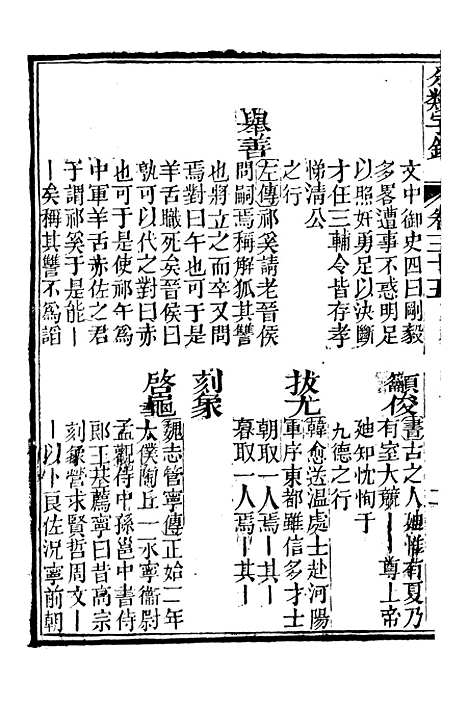 分類字錦
卷三十五
文中御史四曰剛毅
多畧遭事不惑明足
以照奸勇足以決斷
才任三輔令皆存孝
悌清公
之行
舉善
左傳祁奚請老晉侯
問嗣焉稱解狐其讐
也將立之而卒又問
焉對曰午也可于是
羊舌職死矣晉侯曰
孰可以代之對曰赤
也可於是使祁午爲
中軍羊舌赤佐之君
子謂祁奚于是能丨
丨矣稱其讐不爲諂
籲俊
書古之人廸惟有夏乃
有室大競丨丨尊上帝
廸知忱恂于
九德之行
拔尤
韓愈送温處士赴河陽
軍序東都雖信多才士
朝取一人焉丨其丨
暮取一人焉丨其丨
刻象
啓龜
魏志管寧傳正始二年
太僕陶丘一永寧衞尉
孟觀侍中孫邕中書侍
郞王基薦寧曰昔高宗
刻象營求賢哲周文丨
丨以卜良佐況寧前朝